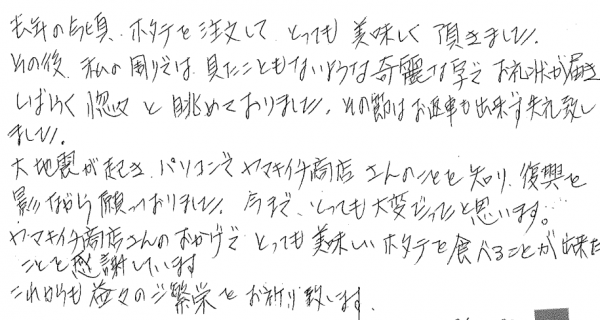 去年の今頃、ホタテを注文して、とっても美味しく頂きました。
その後、私の周りでは、見たこともないような奇麗な字でお礼状が届き
しばらく惚々と眺めておりました。その節はお返事も出来ず失礼致し
ました。
大地震が起き、パソコンでヤマキイチ商店さんのことを知り、復興を
影ながら願っておりました。今まで、とっても大変だったと思います。
ヤマキイチ商店さんのおかげで とっても美味しいホタテを食べることが出来た
ことを感謝しています
これからも益々のご繁栄をお祈り致します。